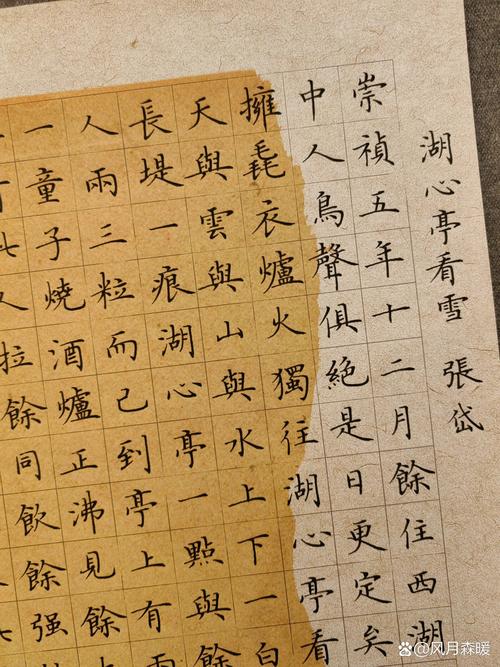 湖心亭看雪 張岱
崇禎五年十二月餘住西湖
中人鳥聲俱絕是日更定矣
擁毳衣爐火獨往湖心亭看
天與雲與山與水上下一白
長堤一痕湖心亭一點與餘
人兩三粒而己到亭上有
一童子燒酒爐正沸見餘
人拉餘同飲餘强
@風月森暖